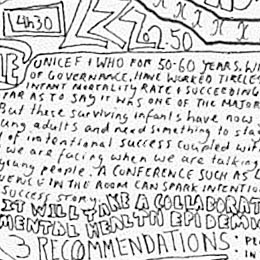 14h30
22.50
UNICEF & WHO FOR 50-60 YEARS, WI
OF GOVERNANCE, HAVE WORKED TIRELES
INFANT MORTALITY RATE & SUCCEEDING
FAR AS TO SAY IT WAS ONE OF THE MAJOR
But these surviving infants have now
ung adults and need something to sta
of intentional success coupled wit
we are facing when we are talking
young people. A CONFERENCE SUCH AS
UENCE IN THE ROOM CAN SPARK INTENTIO
SUCCESS STORY.
IT WILL TAKE A COLLABORAT
MENTAL HEALTH EPIDEM
3 RECOMMENDATIONS:
IN